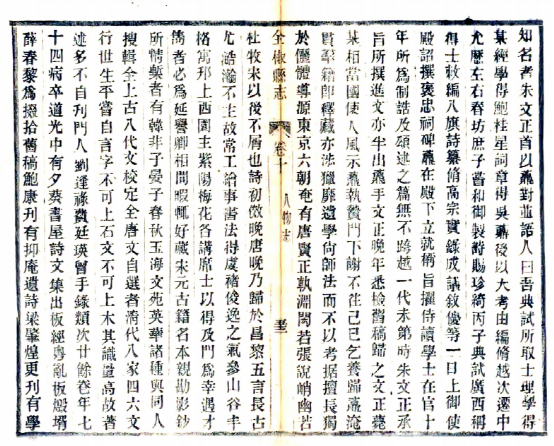 知名者朱文正首以鼒對並語人曰吾典試所取士理學得
某經學得鮑桂星詞章得吳鼒後以大考由編修越次遷中
允歷左右春坊庶子嘗和御製詩賜珍綺丙子典試廣西稱
得士敕編八旗詩纂脩高宗實錄成議敘優等一日上御便
殿詔撰褒忠祠碑鼒在殿下立就稱旨擢侍讀學士在官十
年所爲制誥及頌述之篇無不跨越一代未第時朱文正承
旨所撰進文亦半出鼒手文正晚年悉檢舊稿歸之文正薨
某相當國使人風示鼒執贄門下謝不往己巳乞養歸益淹
貫羣籍卽釋藏亦涉獵靡遺學向師法而不以考據擅長獨
於儷體導源東京六朝奄有唐賢正執淵閎若張說峭幽若
全椒縣志 卷十 人物志
杜牧宋以後不屑也詩初傚晚唐晚乃歸於昌黎五言長古
尤浩瀚不主故常工繪事書法得虞褚俊逸之氣參山谷丰
格寓邗上西園主紫陽梅花各講席士以得及門爲幸遇才
儁者必爲延譽卿相間暇輒好藏宋元古籍名本親勘影鈔
所精槧者有韓非子晏子春秋玉海文苑英華諸種與同人
搜輯全上古八代文校定全唐文自選者清代八家四六文
行世生平嘗自言字不可上石文不可上木其識量高故著
述多不自刊門人劉逢祿戴延瑛曾手錄類次廿餘卷年七
十四病卒道光中有夕葵書屋詩文集出板經粵亂板燬壻
薛春黎爲掇拾舊稿鮑康刊有抑庵遺詩梁肇煌更刊有學